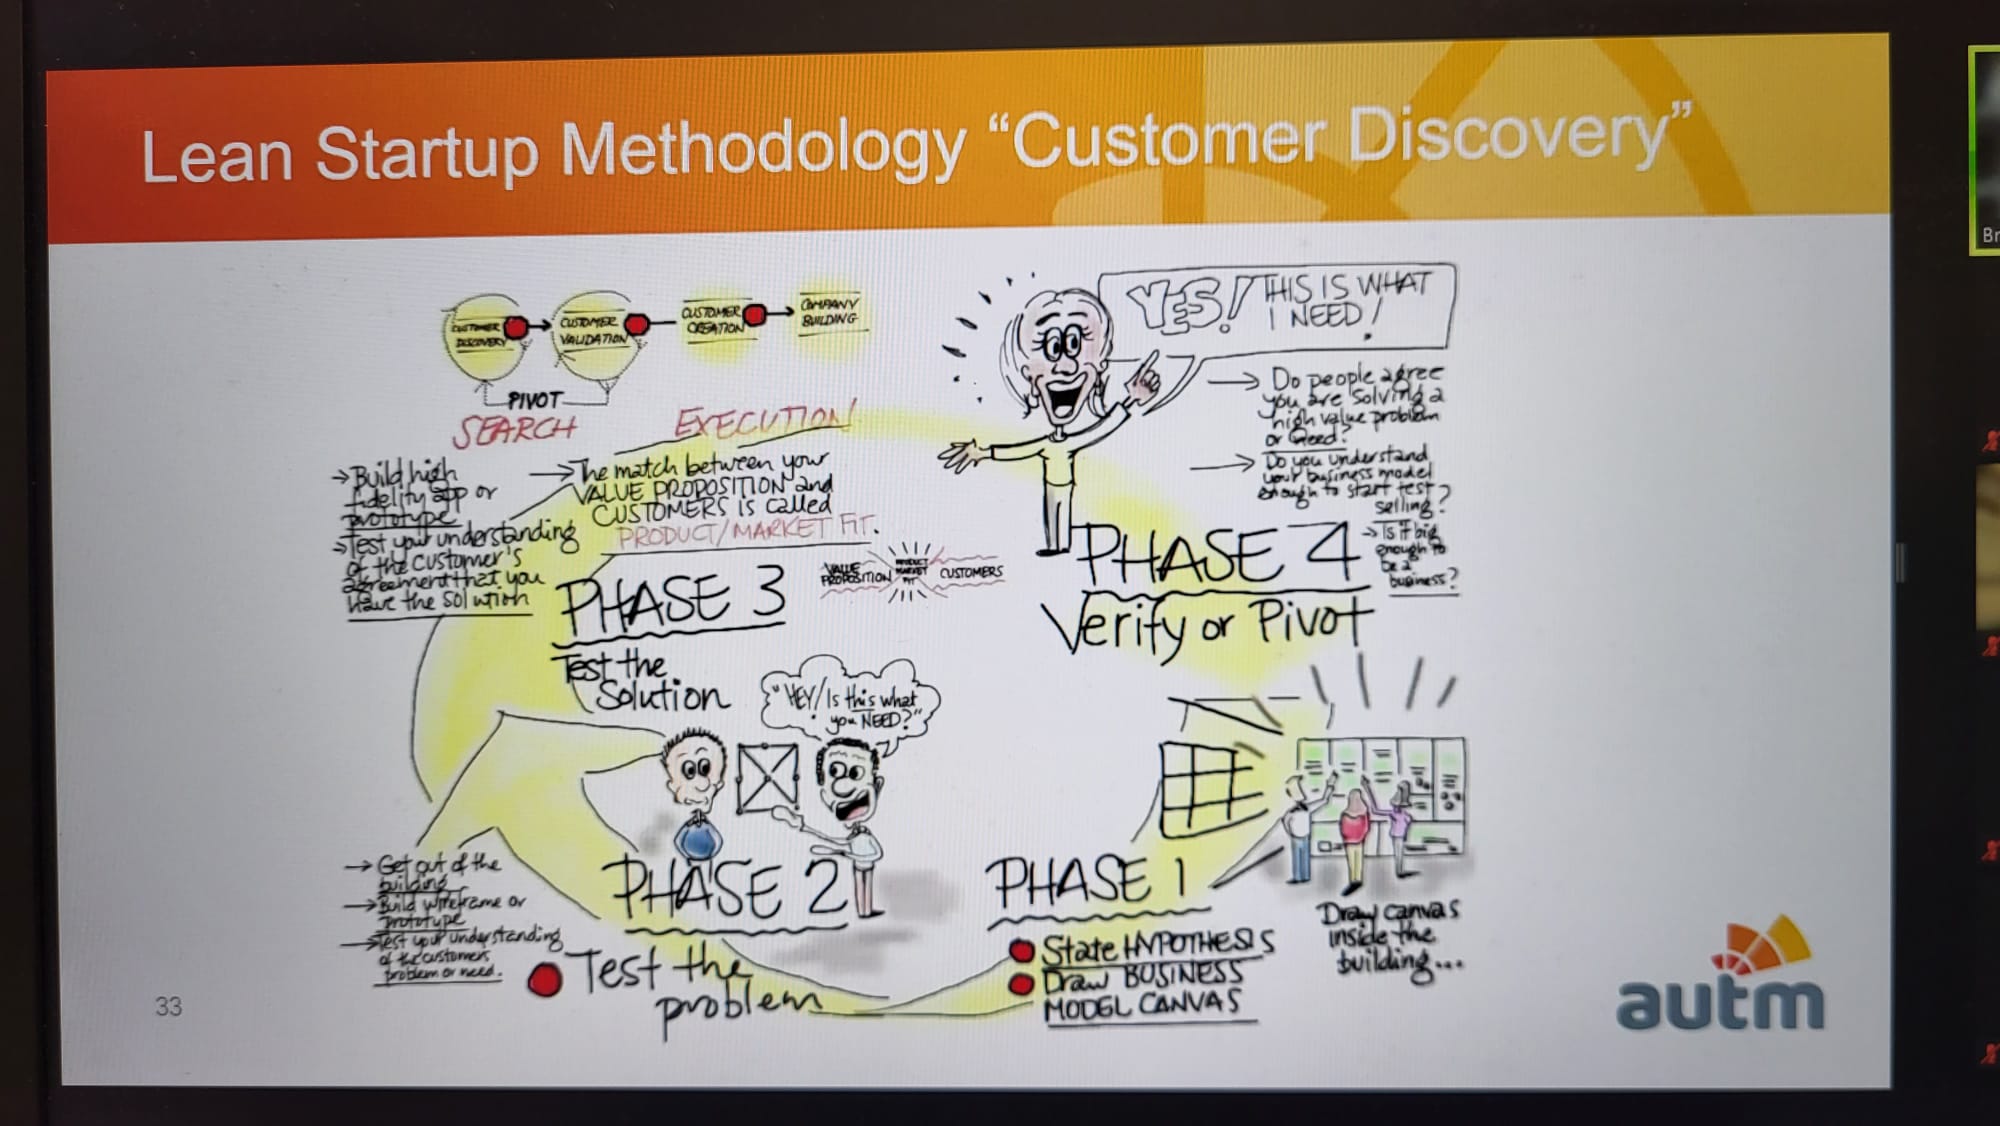 Lean Startup Methodology “Customer Discovery”
CUSTOMER
DISCOVERY
CUSTOMER
VALIDATION
CUSTOMER
CREATION
COMPANY
BUILDING
PIVOT
SEARCH
EXECUTION
YES! THIS IS WHAT
I NEED!
→ Do people agree
you are solving a
high value problem
or need?
→ Do you understand
your business model
enough to start test
selling?
→ Is it big
enough to
be a
business?
PHASE 4
Verify or Pivot
→ Build high
fidelity app or
prototype
→ Test your understanding
of the customer's
agreement that you
have the solution
→ The match between your
VALUE PROPOSITION and
CUSTOMERS is called
PRODUCT/MARKET FIT.
VALUE
PROPOSITION
PRODUCT
MARKET
FIT
CUSTOMERS
PHASE 3
Test the
Solution
"HEY! Is this what
you NEED?"
PHASE 2
Test the
problem
→ Get out of the
building
→ Build wireframe or
prototype
→ Test your understanding
of the customers
problem or need.
PHASE 1
State HYPOTHESIS
Draw BUSINESS
MODEL CANVAS
Draw canvas
inside the
building...
33
autm
Br